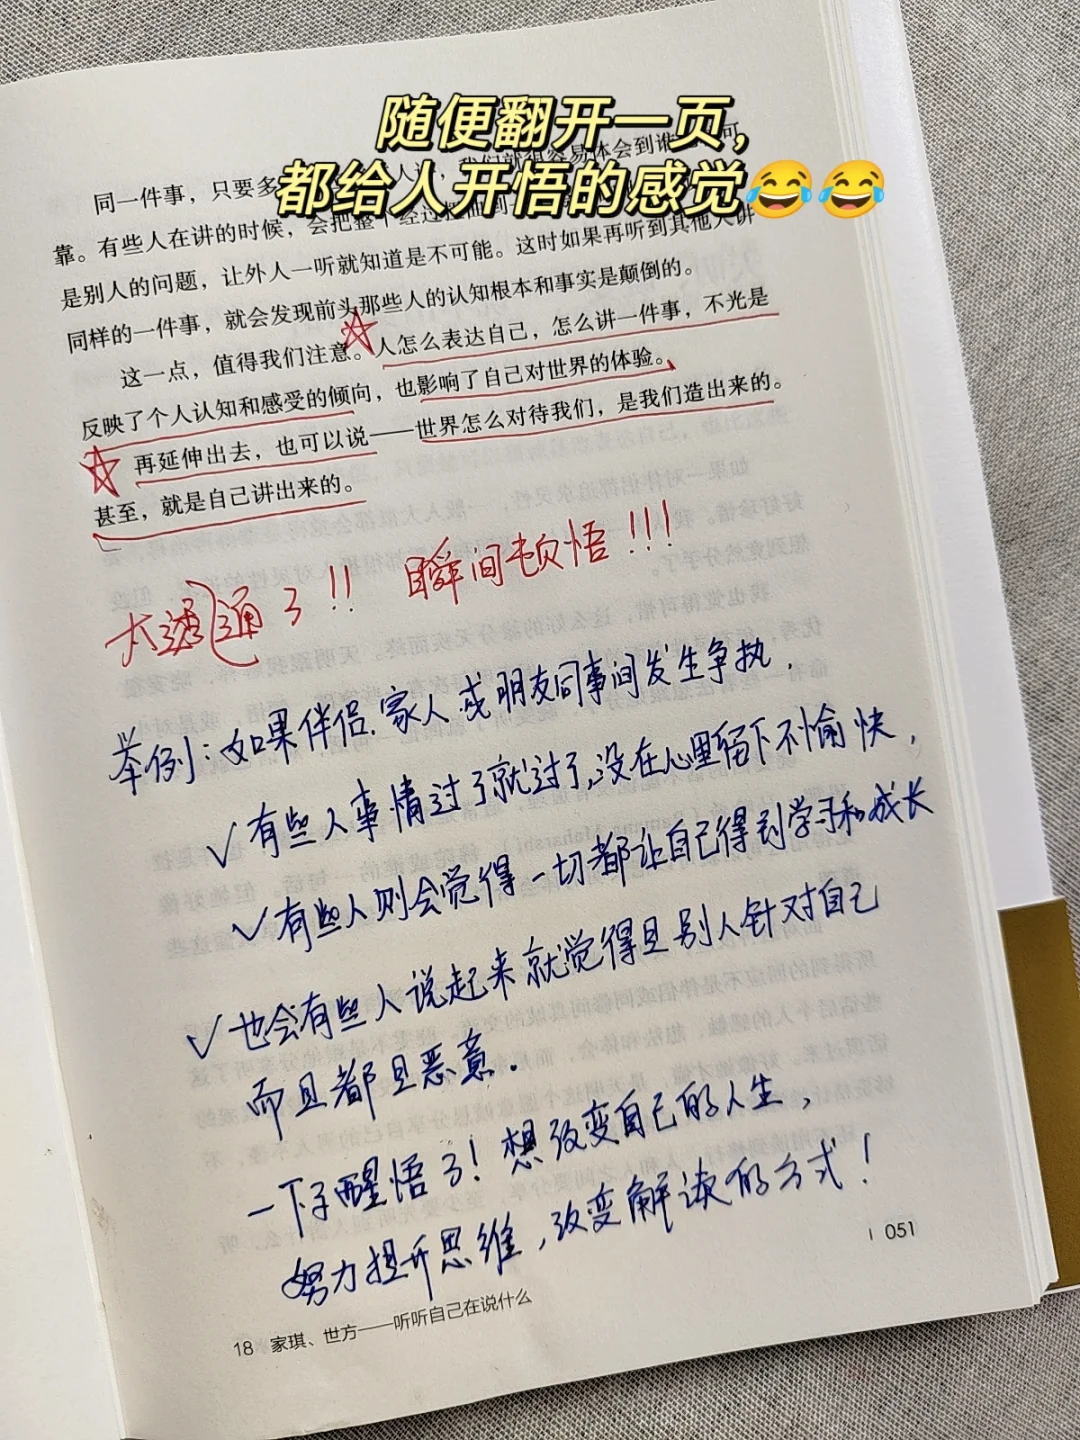 随便翻开一页,
都给人开悟的感觉😂😂
同一件事，只要多
靠。有些人在讲的时候，会把整个经过
是别人的问题，让外人一听就知道是不可能。这时如果再听到其他人讲
同样的一件事，就会发现前头那些人的认知根本和事实是颠倒的。
这一点，值得我们注意。人怎么表达自己，怎么讲一件事，不光是
反映了个人认知和感受的倾向，也影响了自己对世界的体验。
再延伸出去，也可以说——世界怎么对待我们，是我们造出来的。
甚至，就是自己讲出来的。
太透通了!! 瞬间顿悟!!!
举例:如果伴侣.家人或朋友同事间发生争执,
✓有些人事情过了就过了,没在心里留下不愉快,
✓有些人则会觉得一切都让自己得到学习和成长
✓也会有些人说起来就觉得是别人针对自己
而且都是恶意.
一下子醒悟了!想改变自己的人生,
努力提升思维,改变解读的方式!
051
18 家琪、世方——听听自己在说什么